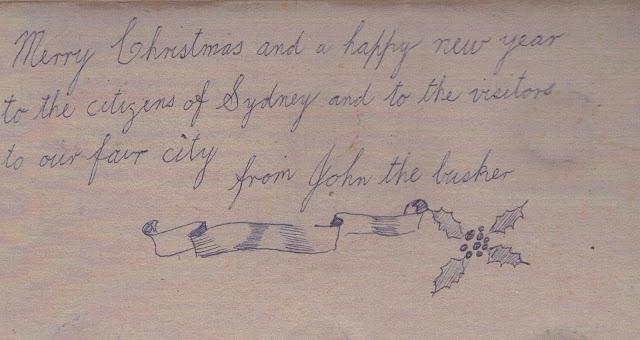 Merry Christmas and a happy new year
to the citizens of Sydney and to the visitors
to our fair city
from John the busker